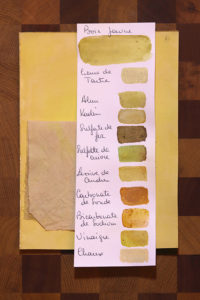 Bois jaune
Crème de
Tartre
Alun
Kaolin
Sulfate de
fer
Sulfate de
cuivre
Lessive de
Cendre
Carbonate
de soude
Bicarbonate
de sodium
Vinaigre
Chaux